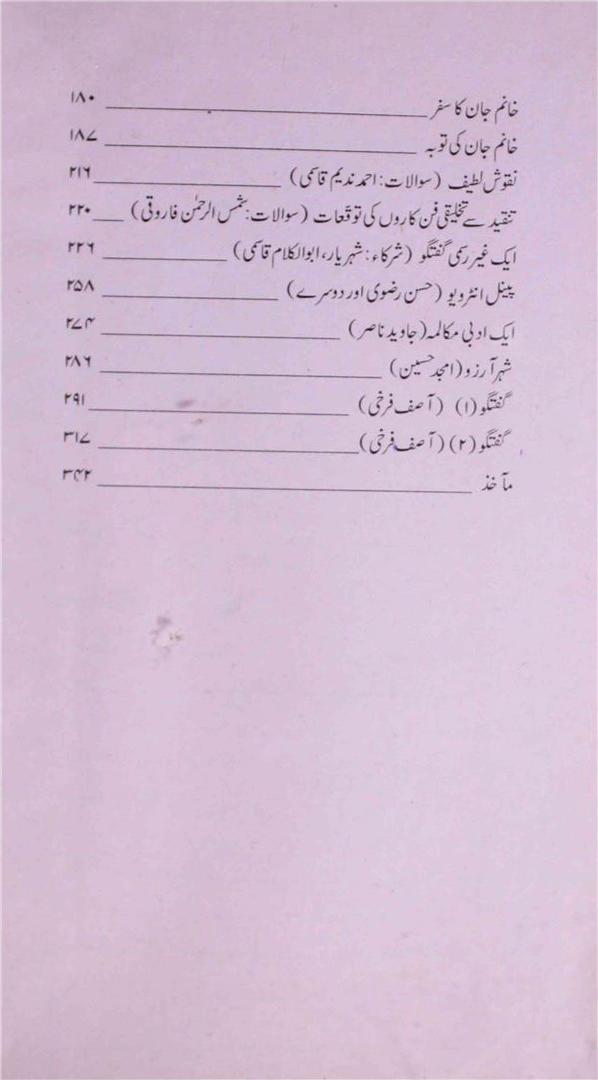 خانم جان کا سفر ۱۸۰
خانم جان کی توبہ ۱۸۷
نقوش لطیف (سوالات: احمد ندیم قاسمی) ۲۱۶
تنقید سے تخلیقی فن کاروں کی توقعات (سوالات: شمس الرحمٰن فاروقی) ۲۲۰
ایک غیر رسمی گفتگو (شرکاء: شہریار، ابوالکلام قاسمی) ۲۲۶
پینل انٹرویو (حسن رضوی اور دوسرے) ۲۵۸
ایک ادبی مکالمہ (جاوید ناصر) ۲۷۴
شہر آرزو (امجد حسین) ۲۸۶
گفتگو (۱) (آصف فرخی) ۲۹۱
گفتگو (۲) (آصف فرخی) ۳۱۷
مآخذ ۳۴۲